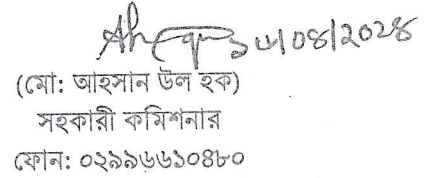 ১৬/০৪/২০২৪
(মো: আহসান উল হক)
সহকারী কমিশনার
ফোন: ০২৯৯৬৬১০৪৮০